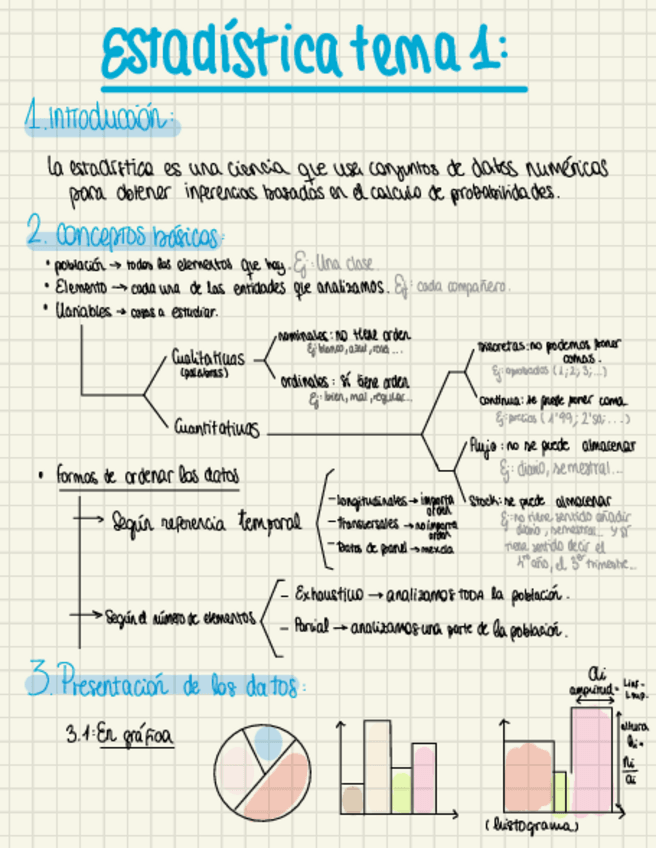 Estadística tema 1:
1. Introducción:
La estadística es una ciencia que usa conjuntos de datos numéricos
para obtener inferencias basadas en el calculo de probabilidades.
2. Conceptos básicos:
• población → todos los elementos que hay. Ej: Una clase.
• Elemento → cada una de las entidades que analizamos. Ej: cada compañero.
• Variables → cosas a estudiar.
Cualitativas
(palabras)
nominales: no tiene orden
Ej: blanco, azul, rosa...
ordinales: sí tiene orden
Ej: bien, mal, regular...
Cuantitativas
Discretas: no podemos poner
comas.
Ej: aprobados (1; 2; 3; ...)
continua: se puede poner coma
Ej: precios (1'99; 2'50; ...)
Flujo: no se puede almacenar
Ej: diario, semestral...
Stock: se puede almacenar
Ej: no tiene sentido añadir
diario, semestral... y sí
tiene sentido decir el
4º año, el 3er trimestre...
• Formas de ordenar los datos
→ Según referencia temporal
- longitudinales → importa
orden
- Transversales → no importa
orden
- Datos de panel → mezcla
→ Según el número de elementos
- Exhaustivo → analizamos TODA la población.
- Parcial → analizamos una parte de la población.
3. Presentación de los datos:
3.1: En gráfica
ai
amplitud =
Lsup.
altura
hi =
ni
ai
(histograma)